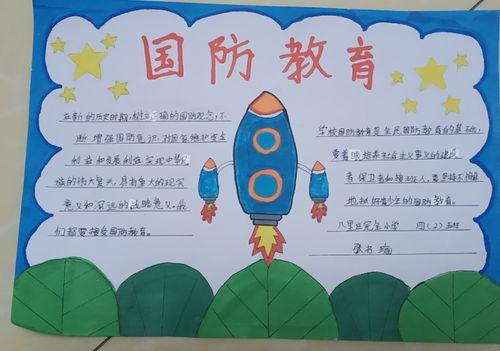 国防教育
在新的历史时期,树立正确的国防观念,不
断增强国防意识,对国家维护安全
利益和发展利益实现中华民
族的伟大复兴,具有重大的现实
意义和深远的战略意义。我
们都要接受国防教育。
学校国防教育是全民国防教育的基础,
要着眼培养社会主义事业的建设
者保卫者和接班人,要坚持不懈
地抓好青少年的国防教育。
八里庄完全小学 四(2)班
张书瑜